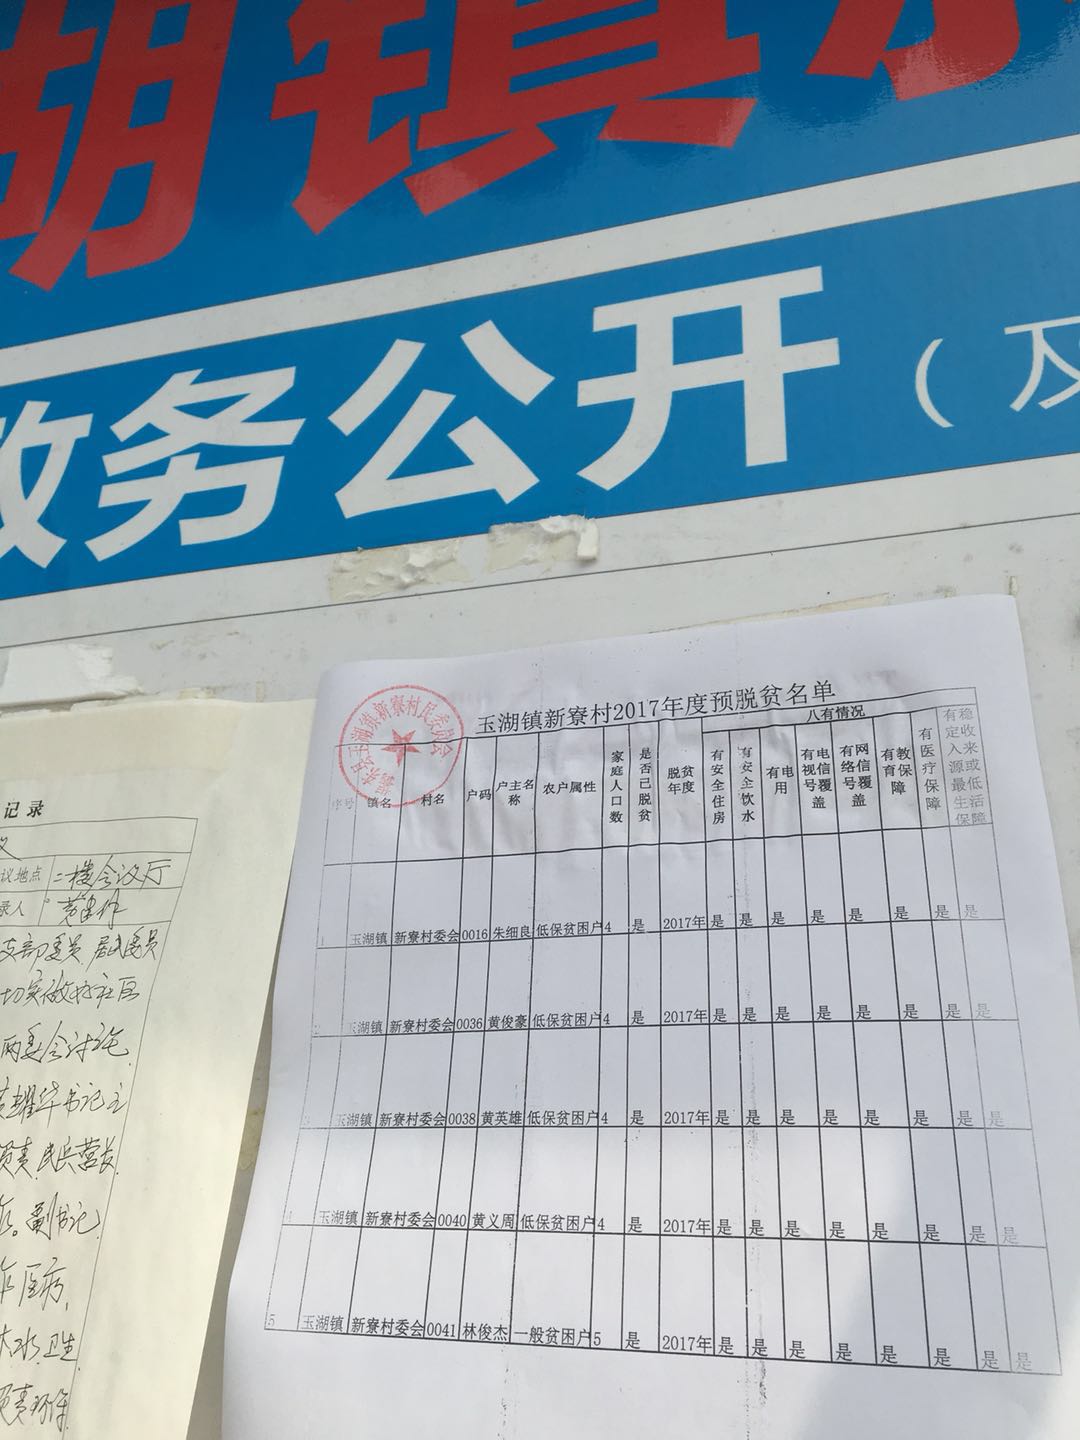 湖镇
政务公开（
玉湖镇新寮村民委员会
玉湖镇新寮村2017年度预脱贫名单
序号 镇名 村名 户码 户主名称 农户属性 家庭人口数 是否已脱贫 脱贫年度 八有情况
有安全住房 有安全饮水 有电用 有电视信号覆盖 有网络信号覆盖 有教育保障 有医疗保障 有稳定收入来源或最低生活保障
1 玉湖镇 新寮村委会 0016 朱细良 低保贫困户 4 是 2017年 是 是 是 是 是 是 是 是
2 玉湖镇 新寮村委会 0036 黄俊豪 低保贫困户 4 是 2017年 是 是 是 是 是 是 是 是
3 玉湖镇 新寮村委会 0038 黄英雄 低保贫困户 4 是 2017年 是 是 是 是 是 是 是 是
4 玉湖镇 新寮村委会 0040 黄义周 低保贫困户 4 是 2017年 是 是 是 是 是 是 是 是
5 玉湖镇 新寮村委会 0041 林俊杰 一般贫困户 5 是 2017年 是 是 是 是 是 是 是 是
记录
议地点 二楼会议厅
录人
支部委员、居民委员
切实做好社区
两委会
书记主
负责、民兵营长
副书记
医疗
卫生
负责环保